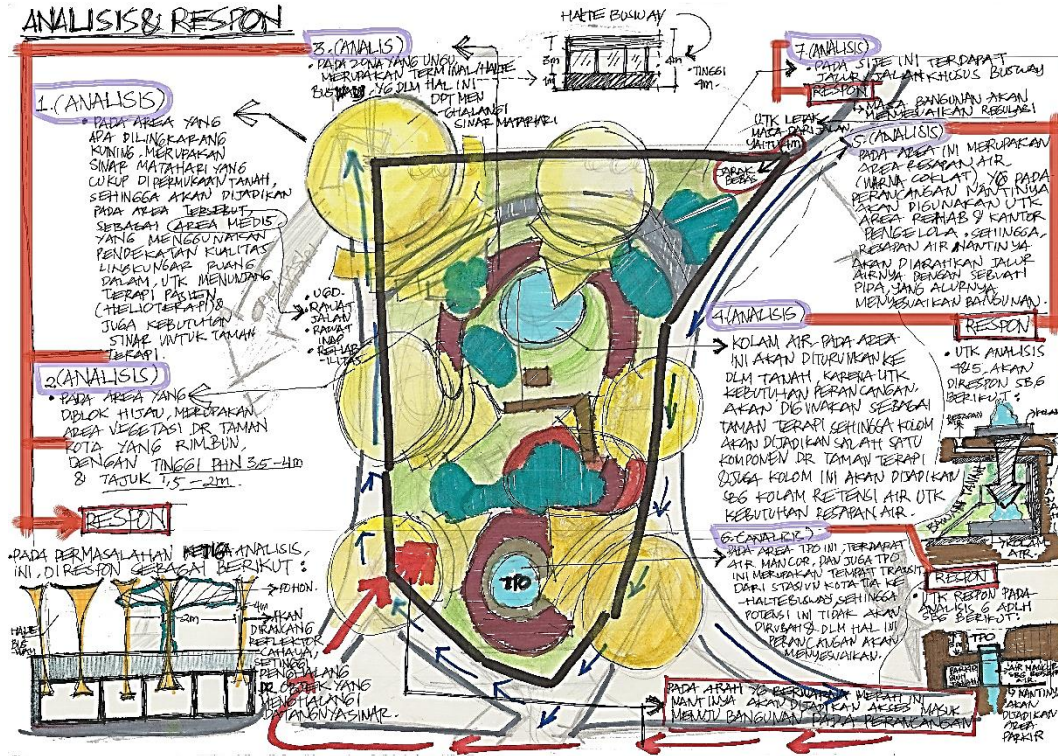 ANALISIS & RESPON
1. (ANALISIS)
• PADA AREA YANG
ADA DILINGKARANG
KUNING, MERUPAKAN
SINAR MATAHARI YANG
CUKUP DIPERMUKAAN TANAH,
SEHINGGA AKAN DIJADIKAN
PADA AREA TERSEBUT
SEBAGAI (AREA MEDIS)
YANG MENGGUNAKAN
PENDEKATAN KUALITAS
LINGKUNGAN RUANG
DALAM, UTK MENUNJANG
TERAPI PASIEN
(HELIOTERAPI) &
JUGA KEBUTUHAN
SINAR UNTUK TAMAN
TERAPI.
2. (ANALISIS)
• PADA AREA YANG
DIBLOK HIJAU, MERUPAKAN
AREA VEGETASI DR TAMAN
KOTA YANG RIMBUN,
DENGAN TINGGI PHN 3,5-4m
& TAJUK 1,5-2m.
RESPON
• PADA PERMASALAHAN KETIGA ANALISIS,
INI, DIRESPON SEBAGAI BERIKUT :
POHON.
HALTE
BUS
WAY
2m
4m
AKAN
DIRANCANG
REFLEKTOR
CAHAYA,
SETINGGI
PENGHALANG
DR OBJEK YANG
MENGHALANGI
DATANGNYA SINAR.
3. (ANALIS)
• PADA ZONA YANG UNGU,
MERUPAKAN TERMINAL/HALTE
BUSWAY, YG DLM HAL INI
DPT MEN
GHALANGI
SINAR MATAHARI
HALTE BUSWAY
3m
1m
4m
• TINGGI
4m.
• UGD.
• RAWAT
JALAN
• RAWAT
INAP
• REHAB
ILITAS
UTK LETAK
MASA DARI JALAN
YAITU 4m
JARAK
BEBAS
TPO
7. (ANALISIS)
• PADA SITE INI TERDAPAT
JALUR JALAN KHUSUS BUSWAY
RESPON
MASA BANGUNAN AKAN
MENYESUAIKAN REGULASI
5. (ANALISIS)
PADA AREA INI MERUPAKAN
AREA RESAPAN AIR
(WARNA COKLAT) YG PADA
PERANCANGAN NANTINYA
AKAN DIGUNAKAN UTK
AREA REHAB & KANTOR
PENGELOLA. SEHINGGA,
RESAPAN AIR NANTINYA
AKAN DIARAHKAN JALUR
AIRNYA DENGAN SEBUAH
PIPA, YANG ALURNYA
MENYESUAIKAN BANGUNAN.
4. (ANALISIS)
RESPON
KOLAM AIR PADA AREA
INI AKAN DITURUNKAN KE
DLM TANAH KARENA UTK
KEBUTUHAN PERANCANGAN,
AKAN DIGUNAKAN SEBAGAI
TAMAN TERAPI SEHINGGA KOLAM
AKAN DIJADIKAN SALAH SATU
KOMPONEN DR TAMAN TERAPI
& JUGA KOLAM INI AKAN DIJADIKAN
SBG KOLAM RETENSI AIR UTK
KEBUTUHAN RESAPAN AIR.
• UTK ANALISIS
4&5, AKAN
DIRESPON SBG
BERIKUT :
RESAPAN
AIR
KOLAM
AIR.
6. (ANALISIS)
PADA AREA TPO INI, TERDAPAT
AIR MANCUR, DAN JUGA TPO
INI MERUPAKAN TEMPAT TRANSIT
DARI STASIUN KOTA TUA KE
HALTE BUSWAY SEHINGGA
POTENSI INI TIDAK AKAN
DIRUBAH & DLM HAL INI
PERANCANGAN AKAN
MENYESUAIKAN.
RESPON
• UTK RESPON PADA
ANALISIS 6 ADLH
SBG BERIKUT :
TPO
BAWAH
TANAH
AIR MANCUR
SBG RESAPAN
AIR.
NANTINYA
AKAN
DIJADIKAN
AREA
PARKIR
PADA ARAH YG BERWARNA MERAH INI
NANTINYA AKAN DIJADIKAN AKSES MASUK
MENUJU BANGUNAN PADA PERANCANGAN